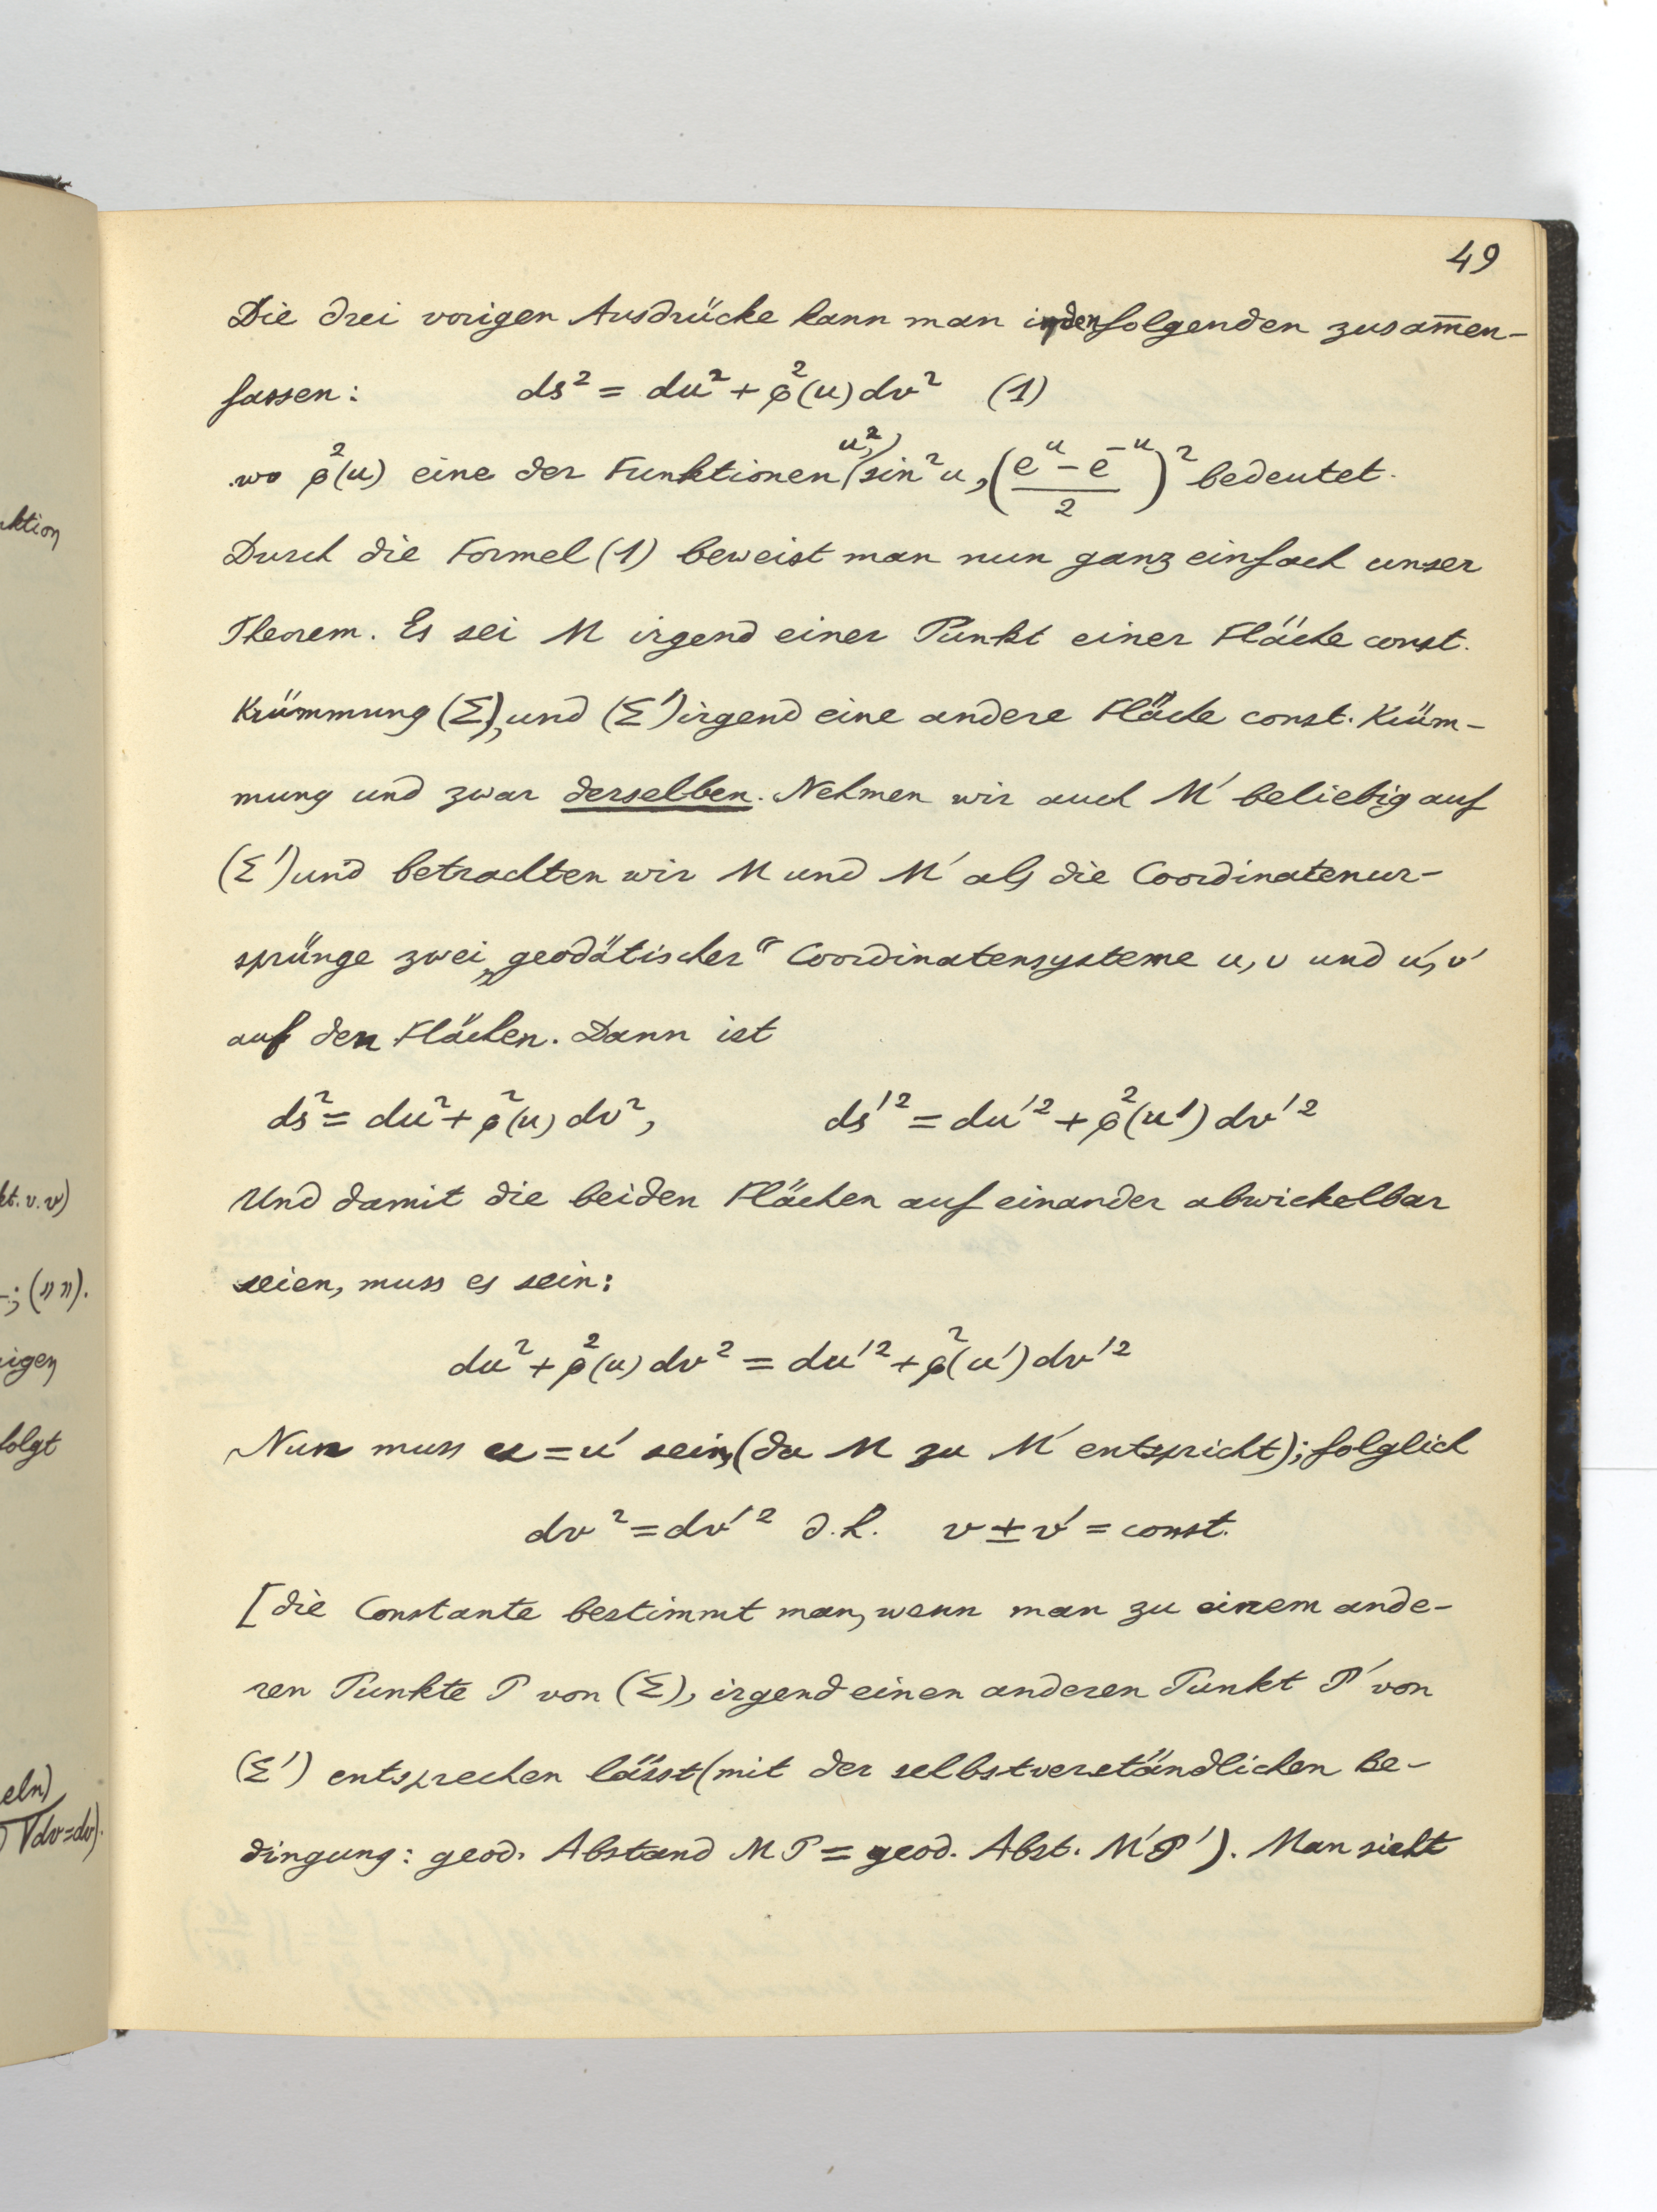 49
Die drei vorigen Ausdrücke kann man in den folgenden zusam̅en-
fassen: ds² = du² + φ²(u) dv² (1)
wo φ²(u) eine der Funktionen u², sin²u, ((e^u - e^-u)/2)² bedeutet.
Durch die Formel (1) beweist man nun ganz einfach unser
Theorem. Es sei M irgend einer Punkt einer Fläche const.
Krümmung (Σ), und (Σ') irgend eine andere Fläche const. Krüm-
mung und zwar derselben. Nehmen wir auch M' beliebig auf
(Σ') und betrachten wir M und M' als die Coordinatenur-
sprünge zwei „geodätischer“ Coordinatensysteme u, v und u', v'
auf den Flächen. Dann ist
ds² = du² + φ²(u) dv², ds'² = du'² + φ²(u') dv'²
Und damit die beiden Flächen auf einander abwickelbar
seien, muss es sein:
du² + φ²(u) dv² = du'² + φ²(u') dv'²
Nun muss u = u' sein, (da M zu M' entspricht); folglich
dv² = dv'² d.h. v ± v' = const.
[die Constante bestimmt man, wenn man zu einem ande-
ren Punkte P von (Σ), irgend einen anderen Punkt P' von
(Σ') entsprechen lässt (mit der selbstverständlichen Be-
dingung: geod. Abstand MP = geod. Abst. M'P'). Man sieht
ktion
kt. v. v)
; (" ").
igen
folgt
eln)
dv = dv).